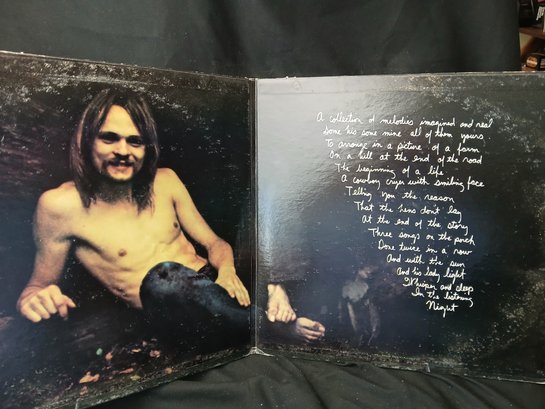 A collection of melodies imagined and real
Some his some mine all of them yours
To arrange in a picture of a farm
On a hill at the end of the road
The beginning of a life
A cowboy cryer with smiling face
Telling you the reason
That the hens don't lay
At the end of the story
Three songs on the porch
Done twice in a row
And with the sun
And his lady light
Whisper and sleep
In the listening
Night